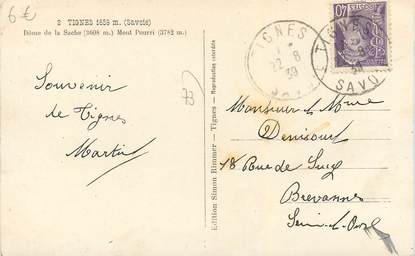 6€
2 TIGNES 1658 m. (Savoie)
Dôme de la Sache (3608 m.) Mont Pourri (3782 m.)
Souvenir
de Tignes
Martin
Edition Simon Rimmer — Tignes — Reproduction interdite
TIGNES
22-8
39
SAVOIE
TIGNES
SAVOIE
40
Monsieur et Mme
Denisourt
18 Rue de Sucy
Brevannes
Seine-et-Oise